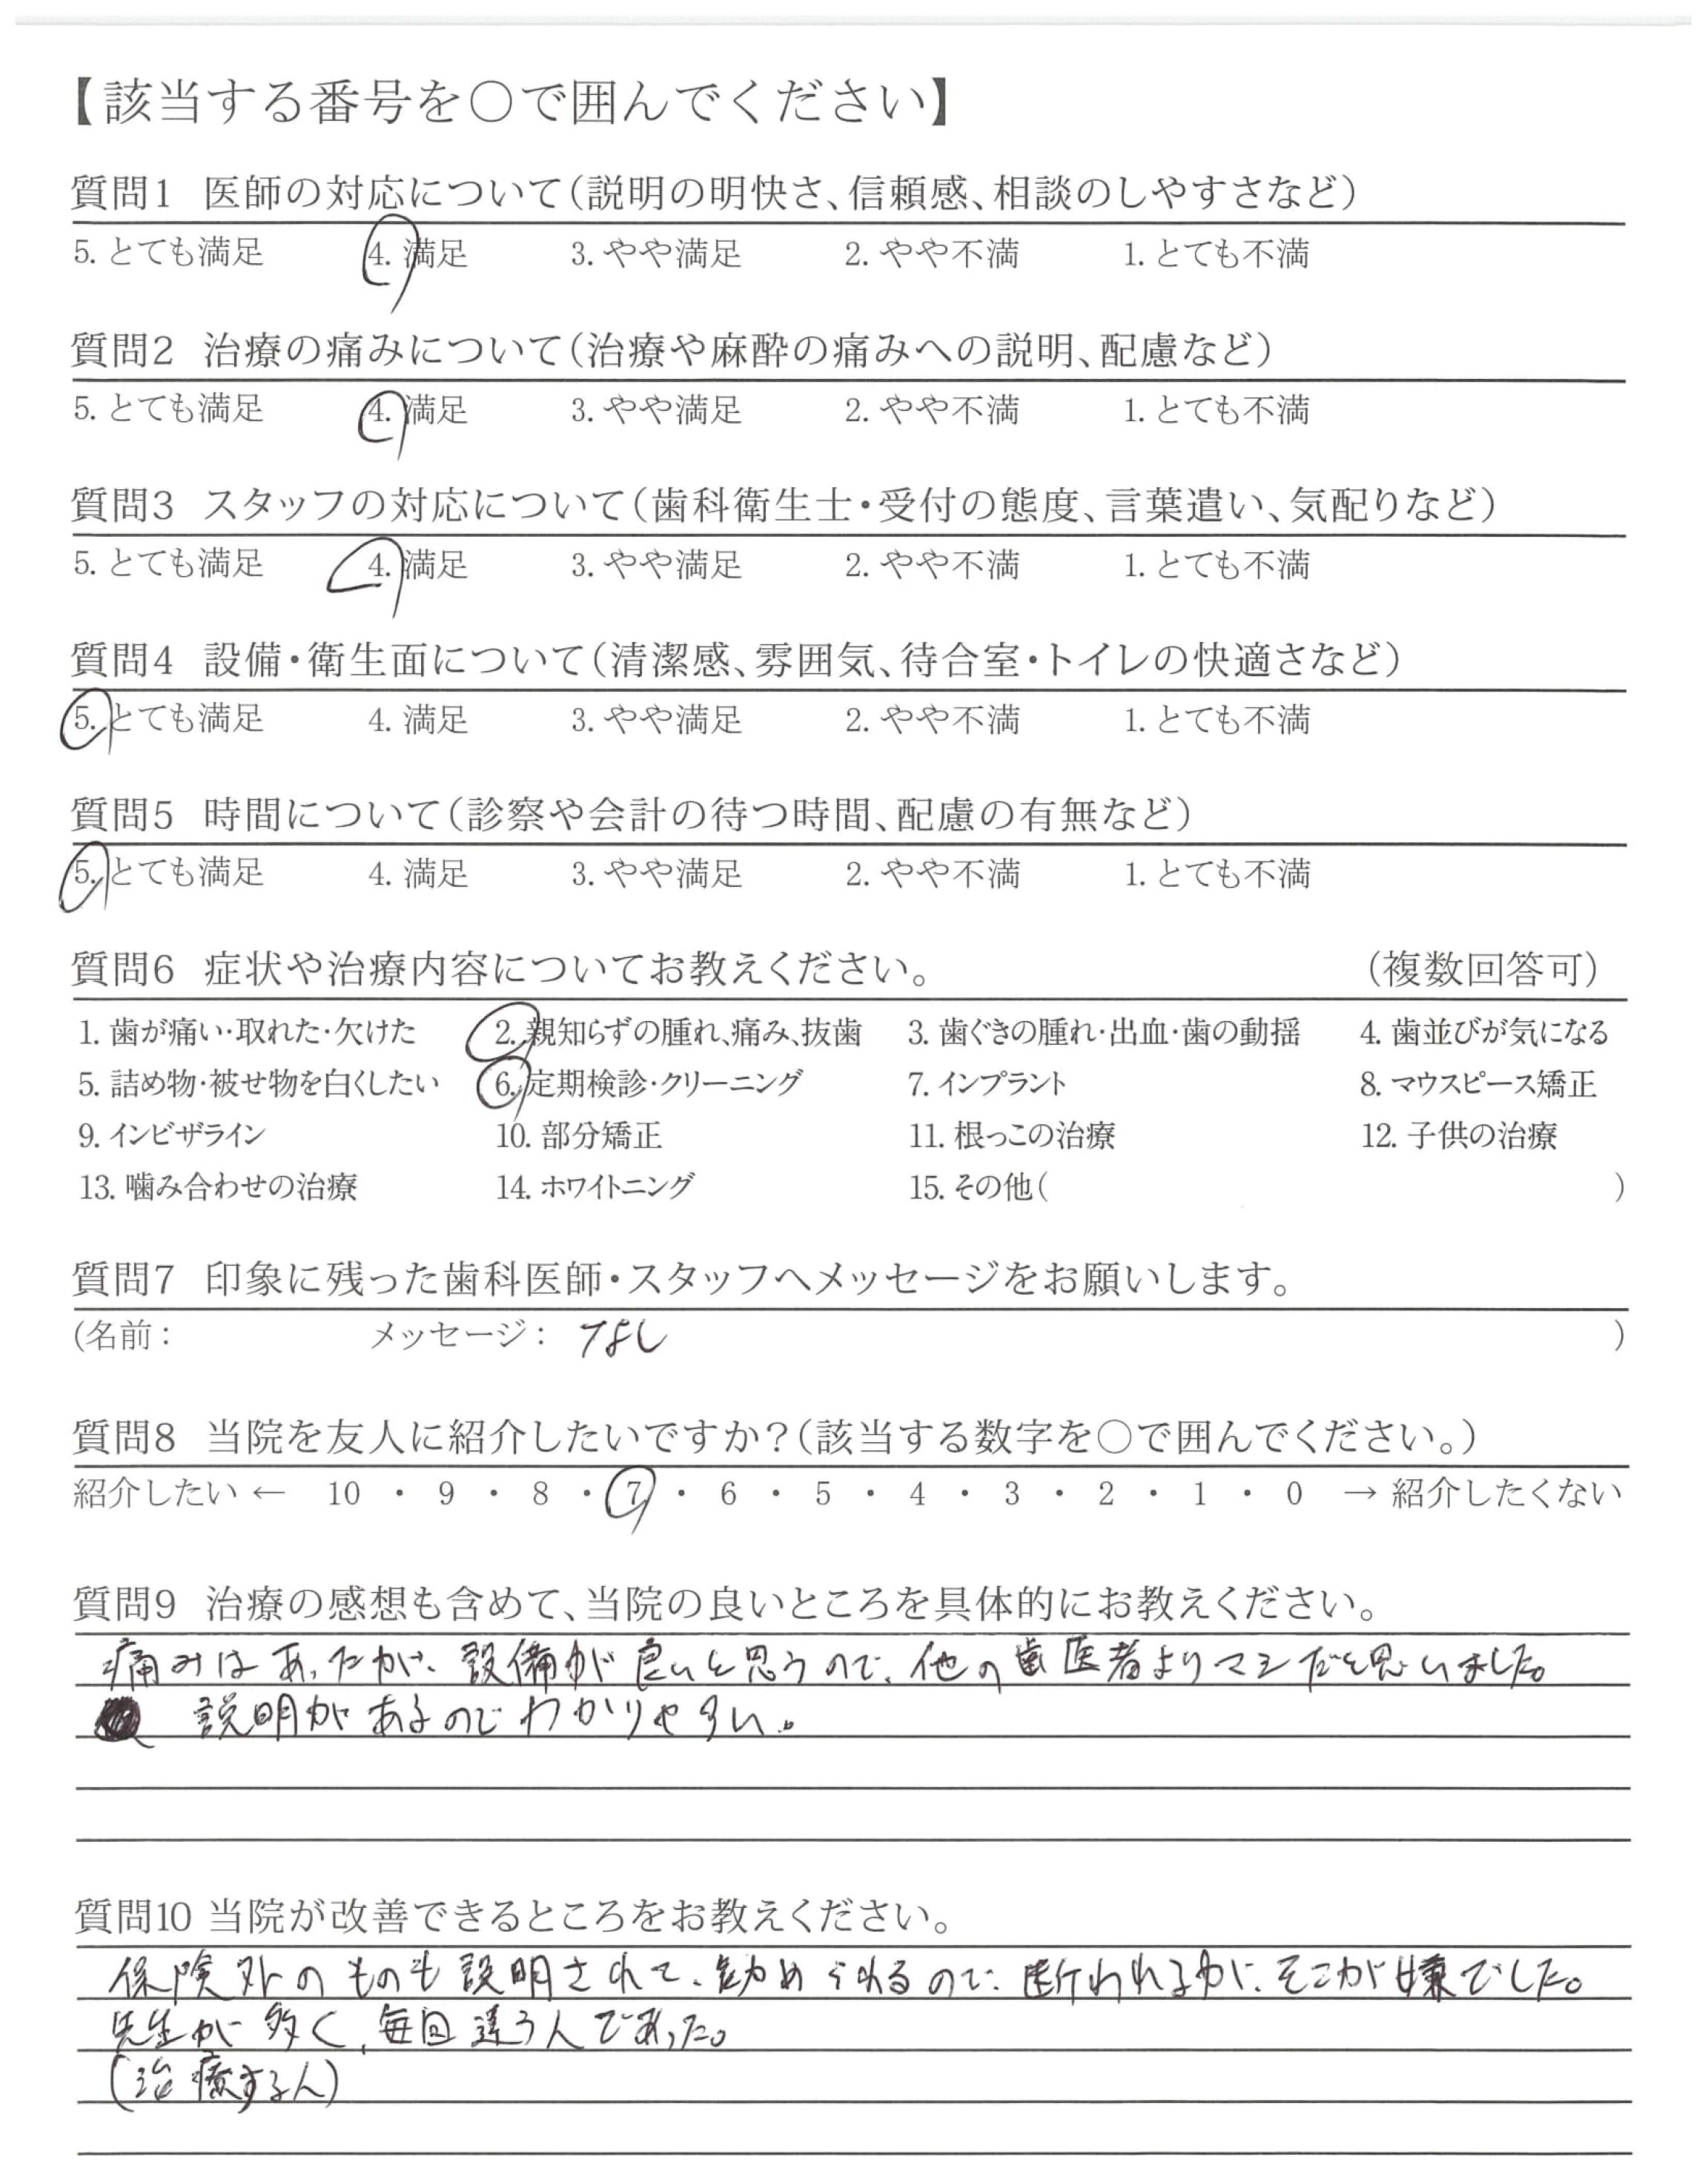 【該当する番号を○で囲んでください】
質問1 医師の対応について(説明の明快さ、信頼感、相談のしやすさなど)
5. とても満足 4. 満足 3. やや満足 2. やや不満 1. とても不満
質問2 治療の痛みについて(治療や麻酔の痛みへの説明、配慮など)
5. とても満足 4. 満足 3. やや満足 2. やや不満 1. とても不満
質問3 スタッフの対応について(歯科衛生士・受付の態度、言葉遣い、気配りなど)
5. とても満足 4. 満足 3. やや満足 2. やや不満 1. とても不満
質問4 設備・衛生面について(清潔感、雰囲気、待合室・トイレの快適さなど)
5. とても満足 4. 満足 3. やや満足 2. やや不満 1. とても不満
質問5 時間について(診察や会計の待つ時間、配慮の有無など)
5. とても満足 4. 満足 3. やや満足 2. やや不満 1. とても不満
質問6 症状や治療内容についてお教えください。 (複数回答可)
1. 歯が痛い・取れた・欠けた 2. 親知らずの腫れ、痛み、抜歯 3. 歯ぐきの腫れ・出血・歯の動揺 4. 歯並びが気になる
5. 詰め物・被せ物を白くしたい 6. 定期検診・クリーニング 7. インプラント 8. マウスピース矯正
9. インビザライン 10. 部分矯正 11. 根っこの治療 12. 子供の治療
13. 噛み合わせの治療 14. ホワイトニング 15. その他( )
質問7 印象に残った歯科医師・スタッフへメッセージをお願いします。
(名前: メッセージ: なし )
質問8 当院を友人に紹介したいですか?(該当する数字を○で囲んでください。)
紹介したい ← 10 ・ 9 ・ 8 ・ 7 ・ 6 ・ 5 ・ 4 ・ 3 ・ 2 ・ 1 ・ 0 → 紹介したくない
質問9 治療の感想も含めて、当院の良いところを具体的にお教えください。
痛みはあったが、設備が良いと思うので、他の歯医者よりマシだと思いました。
説明があるのでわかりやすい。
質問10 当院が改善できるところをお教えください。
保険外のものも説明されて、勧められるので、断われるが、そこが嫌でした。
先生が多く、毎回違う人であった。
(治療する人)